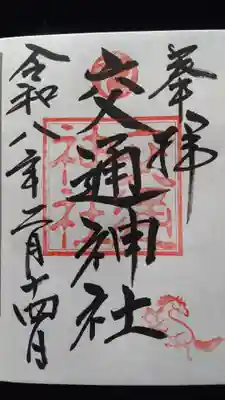 奉拝
交通神社
令和八年二月十四日